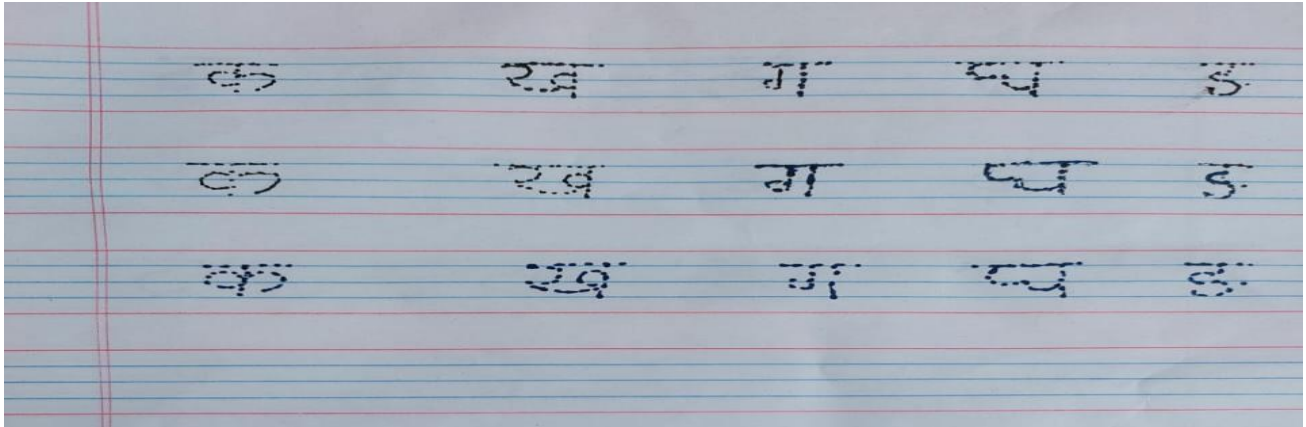 क ख ग घ ङ
क ख ग घ ङ
क ख ग घ ङ